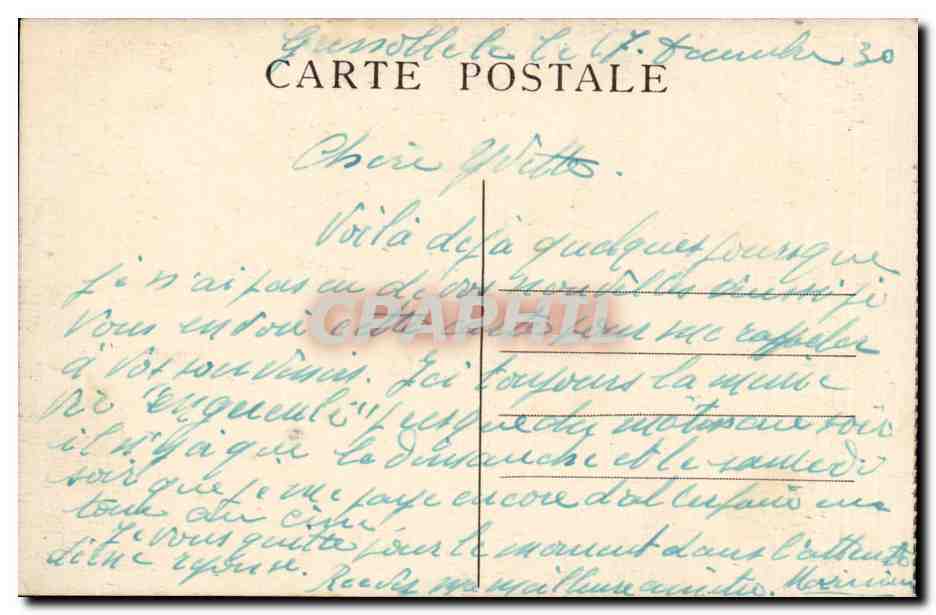 le 17 Décembre 30
CARTE POSTALE
Chère Yvette.
Voilà déjà quelques jours que
je n'ai pas eu de vos nouvelles aussi je
vous envoi cette carte pour me rappeler
à vos souvenirs. Ici toujours la même
vie "Engueulé" jusque du matin au soir
il n'y a que le dimanche et le samedi
soir que je me paye encore d'aller faire un
tour au ciné.
Je vous quitte pour le moment dans l'attente
d'une réponse.
Recevez ma meilleure amitié.
CPAPHIL